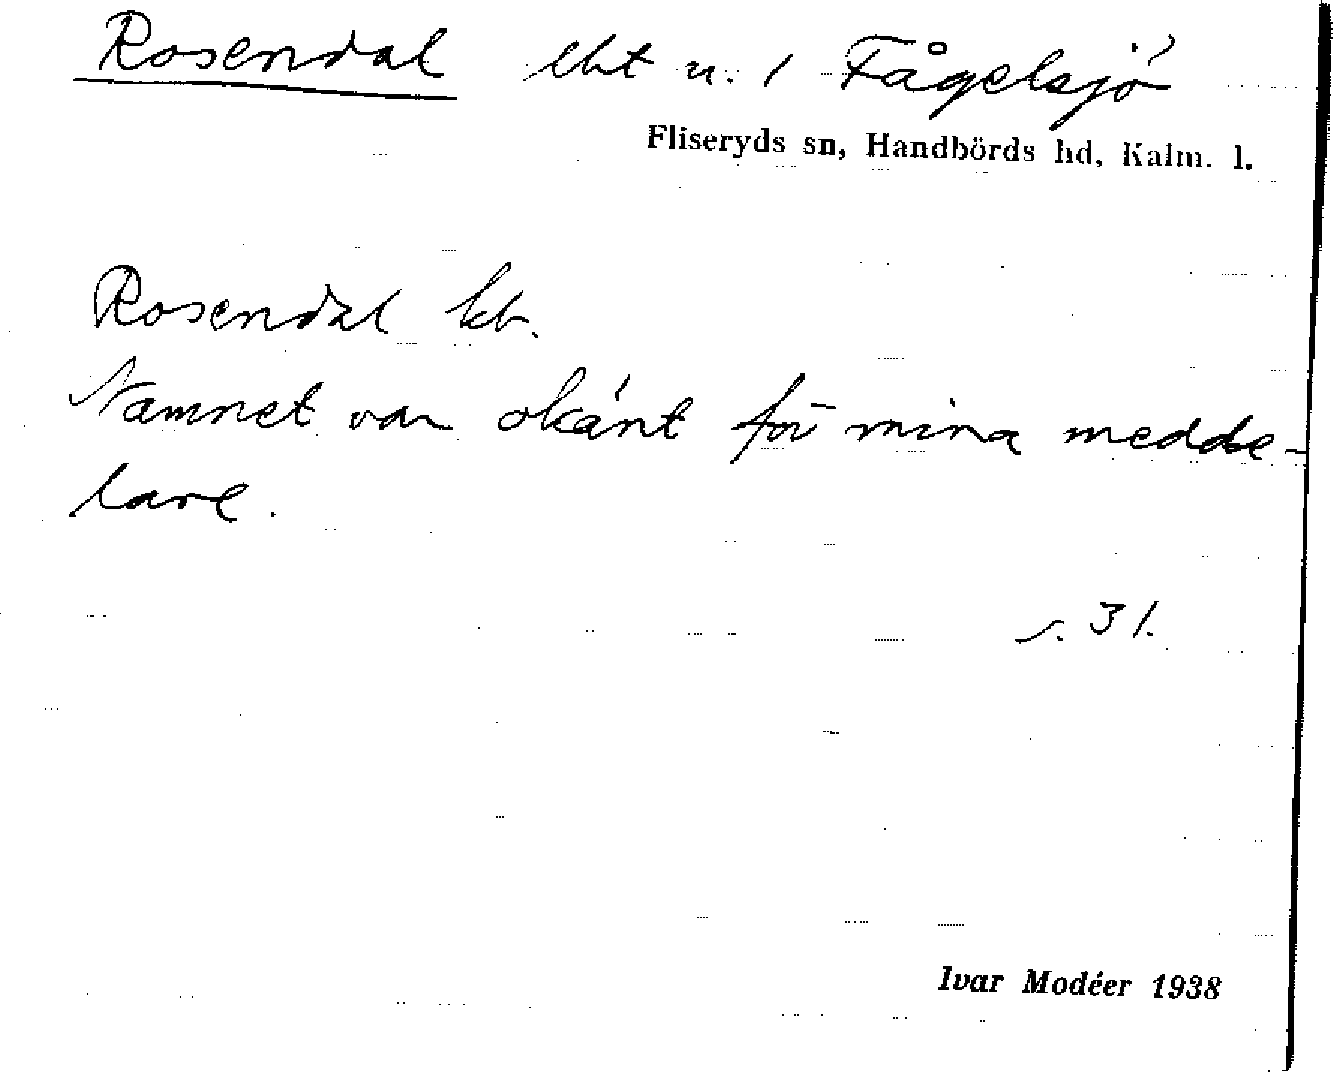 Rosendal lht u. 1 Fågelsjö
Fliseryds sn, Handbörds hd, Kalm. l.
Rosendal kb.
Namnet var okänt för mina medde-
lare.
s. 31.
Ivar Modéer 1938